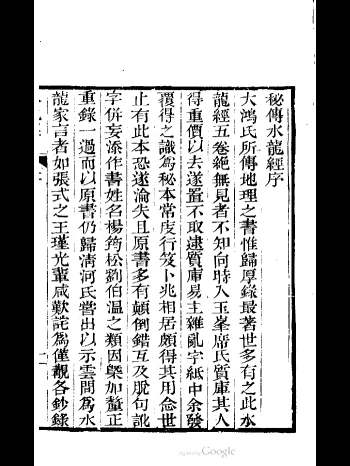 秘傳水龍經序
大鴻氏所傳地理之書惟歸厚錄最著世多有之此水
龍經五卷絕無見者不知向時入玉峯席氏質庫其人
得重價以去遂置不取逮質庫易主雜亂字紙中余發
覆得之識為秘本常皮行笈卜兆相居頗得其用念世
止有此本恐遂淪失且原書多有顛倒錯互及脫句訛
字併妄添作書姓名楊筠松劉伯温之類因槩加釐正
重錄一過而以原書仍歸清河氏嘗出以示雲間為水
龍家言者如張式之王瑾光輩咸歎詫為僅觀各鈔錄
Google